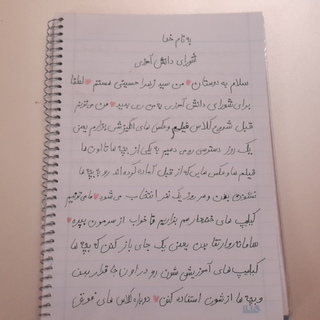 به نام خدا
شورای دانش آموزی
سلام به دوستان من سید رضا حسینی هستم لطفا
برای شورای دانش آموزی به من رای بدید من میتونم
قبل شروع کلاس فیلم و عکس های انگیزشی بزارم یعنی
یک روز دسترسی رو میدیم به یکی از بچه ها تا اون ها
فیلم ها و عکس هایی که از قبل آماده کرده اند رو به بچه ها
نشون بدن و هر روز یک نفر انتخاب می شود ما می توانیم
کلیپ های خنده دار هم بزاریم تا خواب از سرمون بپره
سامانه رو ارتقا بدن یعنی یک جای باز کنن که بچه ها
کلیپ های آموزشی شون رو در اون جا قرار بدن
و بچه ها ازشون استفاده کنن دوباره کلاس های